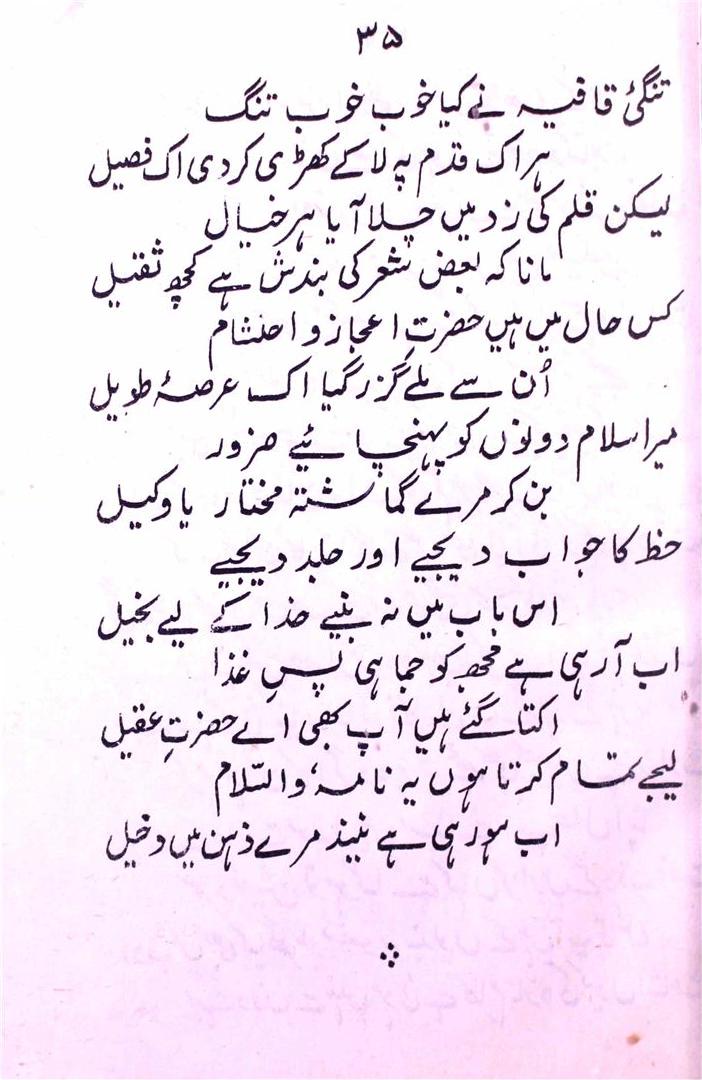 ۳۵
تنگئ قافیہ نے کیا خوب خوب تنگ
ہر اک قدم پہ لا کے کھڑی کر دی اک فصیل
لیکن قلم کی زد میں چلا آیا ہر خیال
مانا کہ بعض شعر کی بندش ہے کچھ ثقیل
کس حال میں ہیں حضرتِ اعجاز و احتشام
اُن سے ملے گزر گیا اک عرصۂ طویل
میرا سلام دونوں کو پہنچائیے ضرور
بن کر مرے گماشتہ مختار یا وکیل
خط کا جواب دیجیے اور جلد دیجیے
اس باب میں نہ بنیے خدا کے لیے بخیل
اب آ رہی ہے مجھ کو جماہی پسِ غذا
اکتا گئے ہیں آپ بھی اے حضرتِ عقیل
لیجے تمام کرتا ہوں یہ نامہ، والسّلام
اب ہو رہی ہے نیند مرے ذہن میں دخیل